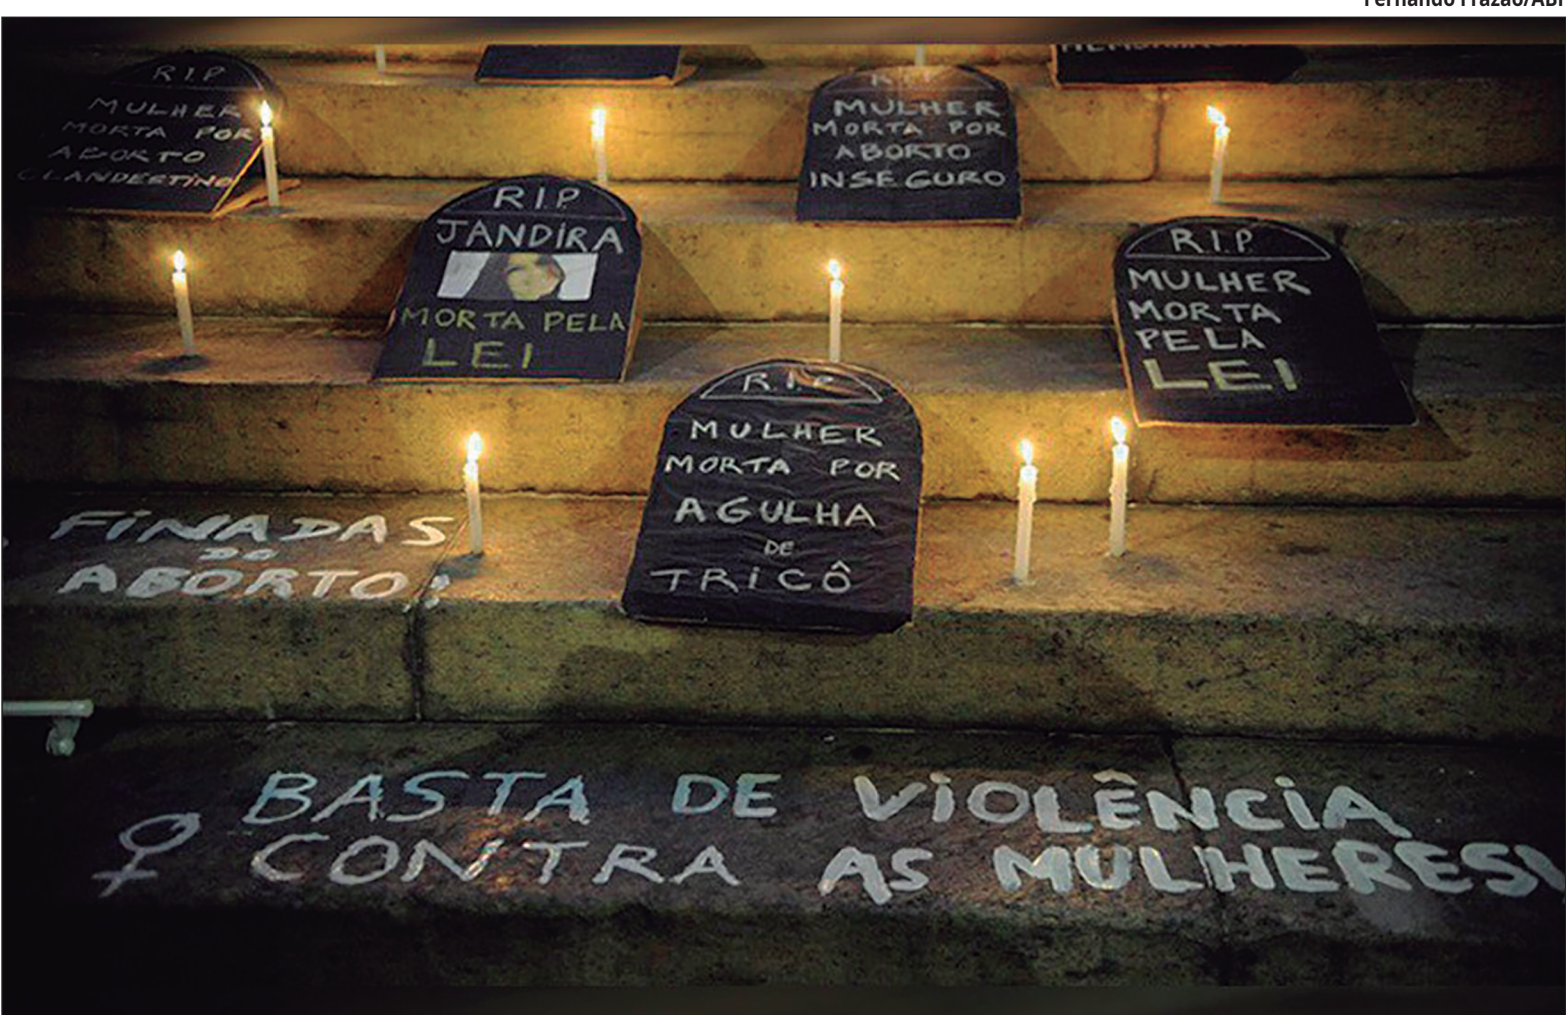 Fernando Frazão/ABr
R.I.P
MULHER
MORTA POR
ABORTO
CLANDESTINO
R.I.P
MULHER
MORTA POR
ABORTO
INSEGURO
R.I.P
JANDIRA
MORTA PELA
LEI
R.I.P.
MULHER
MORTA
PELA
LEI
R.I.P
MULHER
MORTA POR
AGULHA
DE
TRICÔ
FINADAS
DO
ABORTO!
BASTA DE VIOLÊNCIA
CONTRA AS MULHERES!